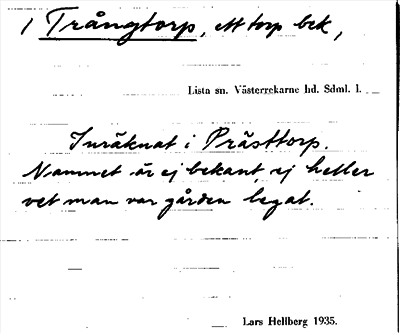 1 Trångtorp, ett torp bek,
Lista sn. Västerrekarne hd. Sdml. l.
Inräknat i Prästtorp.
Namnet är ej bekant, ej heller
vet man var gården legat.
Lars Hellberg 1935.